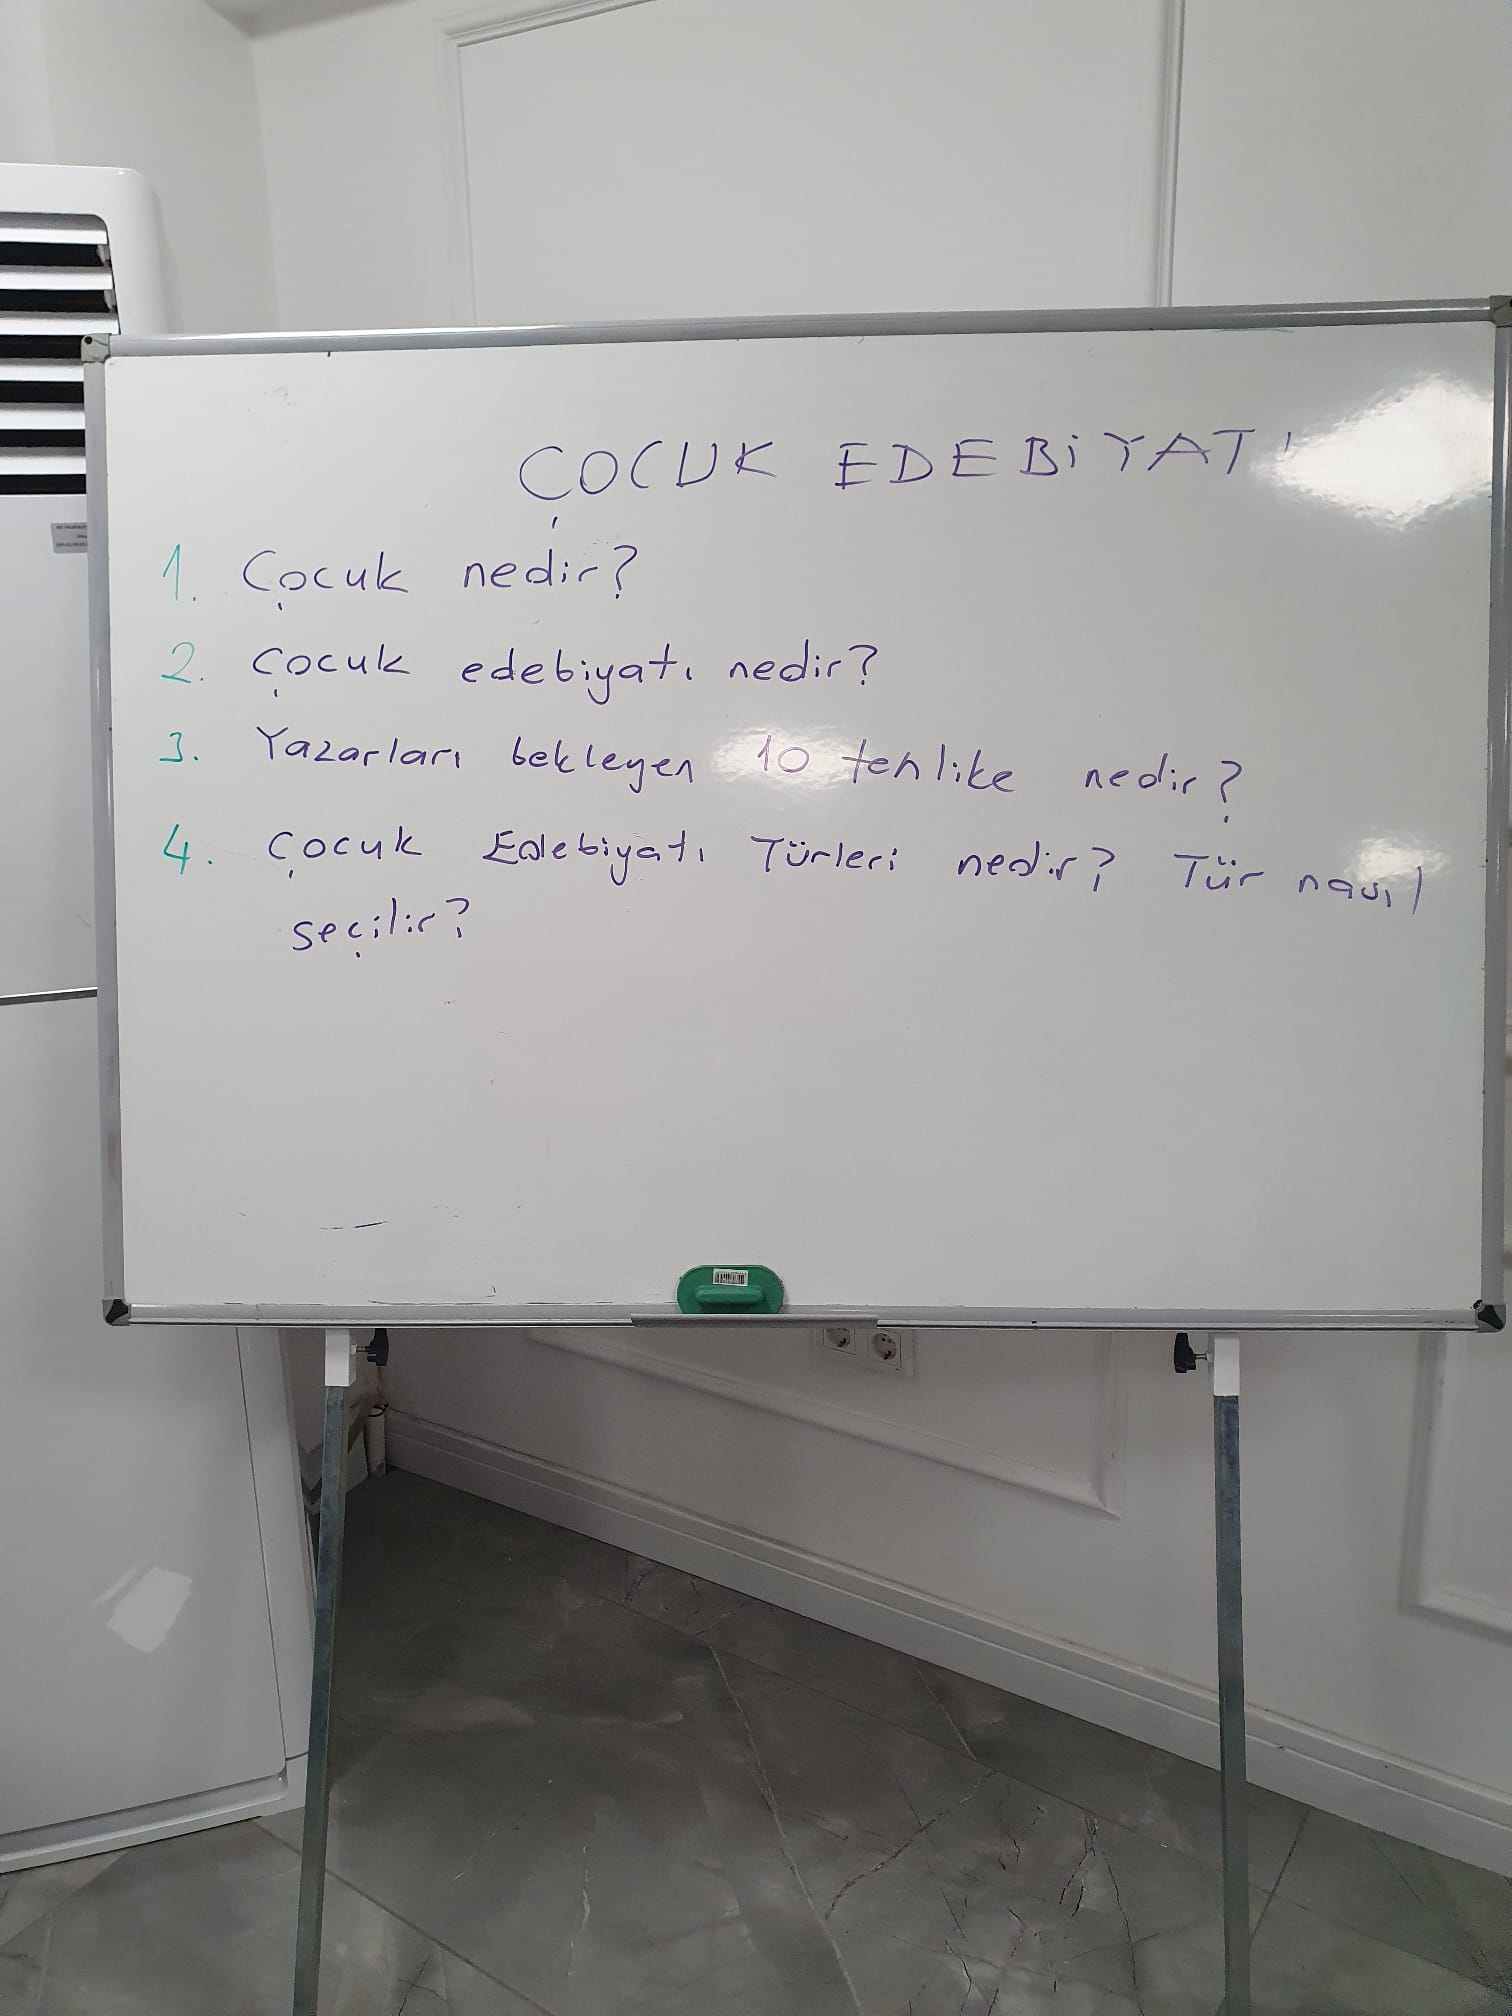 ÇOCUK EDEBİYATI
1. Çocuk nedir?
2. Çocuk edebiyatı nedir?
3. Yazarları bekleyen 10 tehlike nedir?
4. Çocuk Edebiyatı Türleri nedir? Tür nasıl
seçilir?